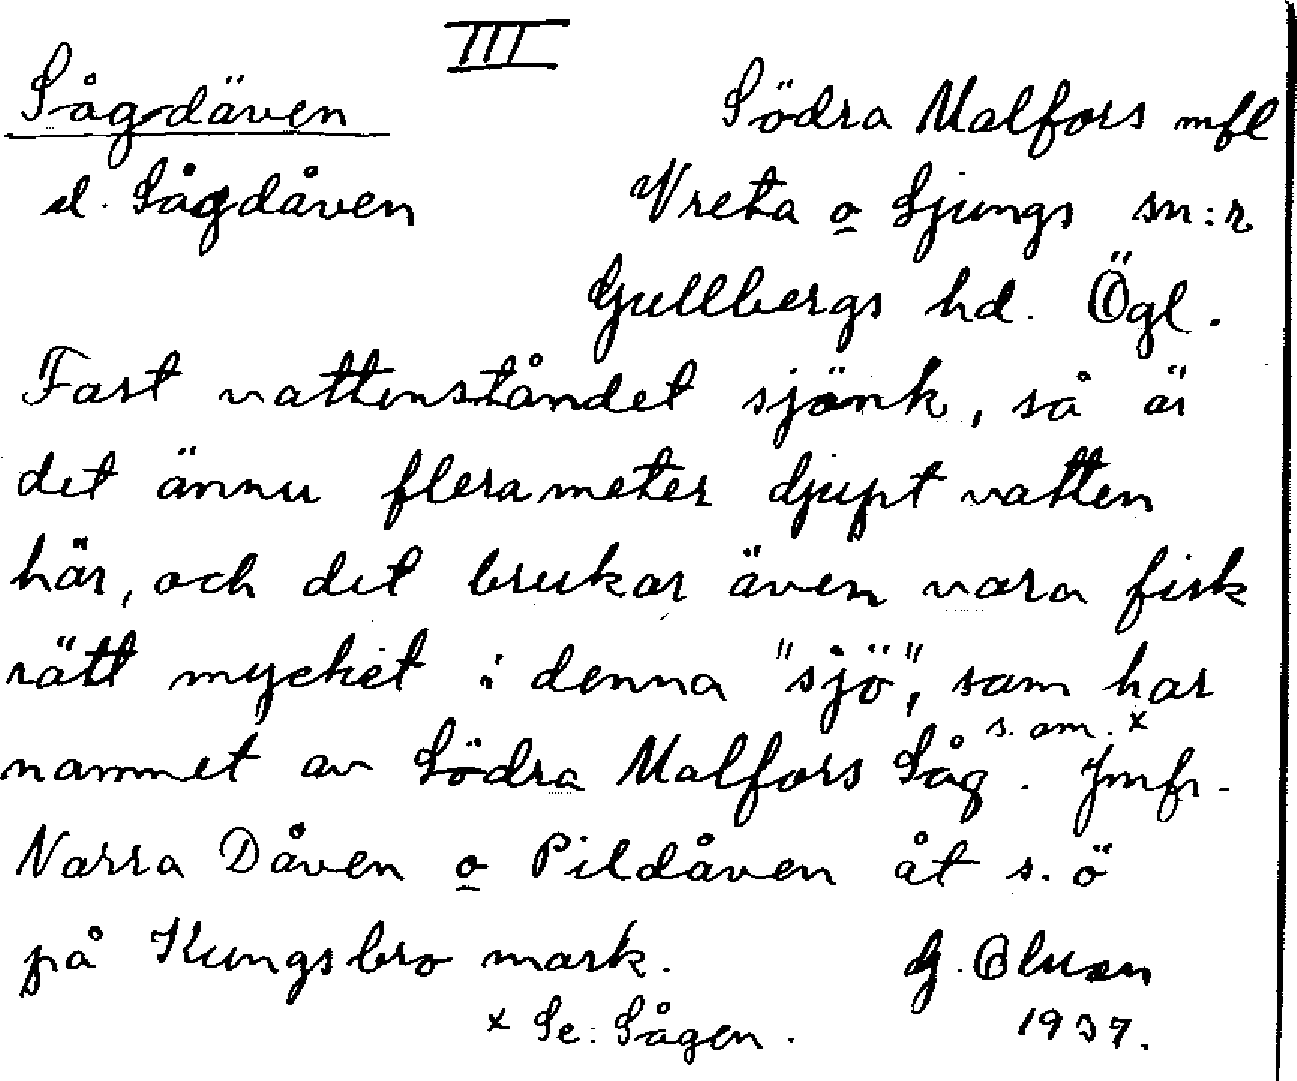 III
Sågdäven
d. Sågdåven
Södra Malfors mfl
Vreta o Ljungs sn:r
Gullbergs hd. Ögl.
Fast vattenståndet sjönk, så är
det ännu flera meter djupt vatten
här, och det brukar även vara fisk
rätt mycket i denna "sjö", som har
namnet av Södra Malfors Såg s. om. x. Jmfr.
Norra Dåven o Pildåven åt s. ö
på Kungsbro mark.
G. Olsson
1937.
x Se: Sågen.